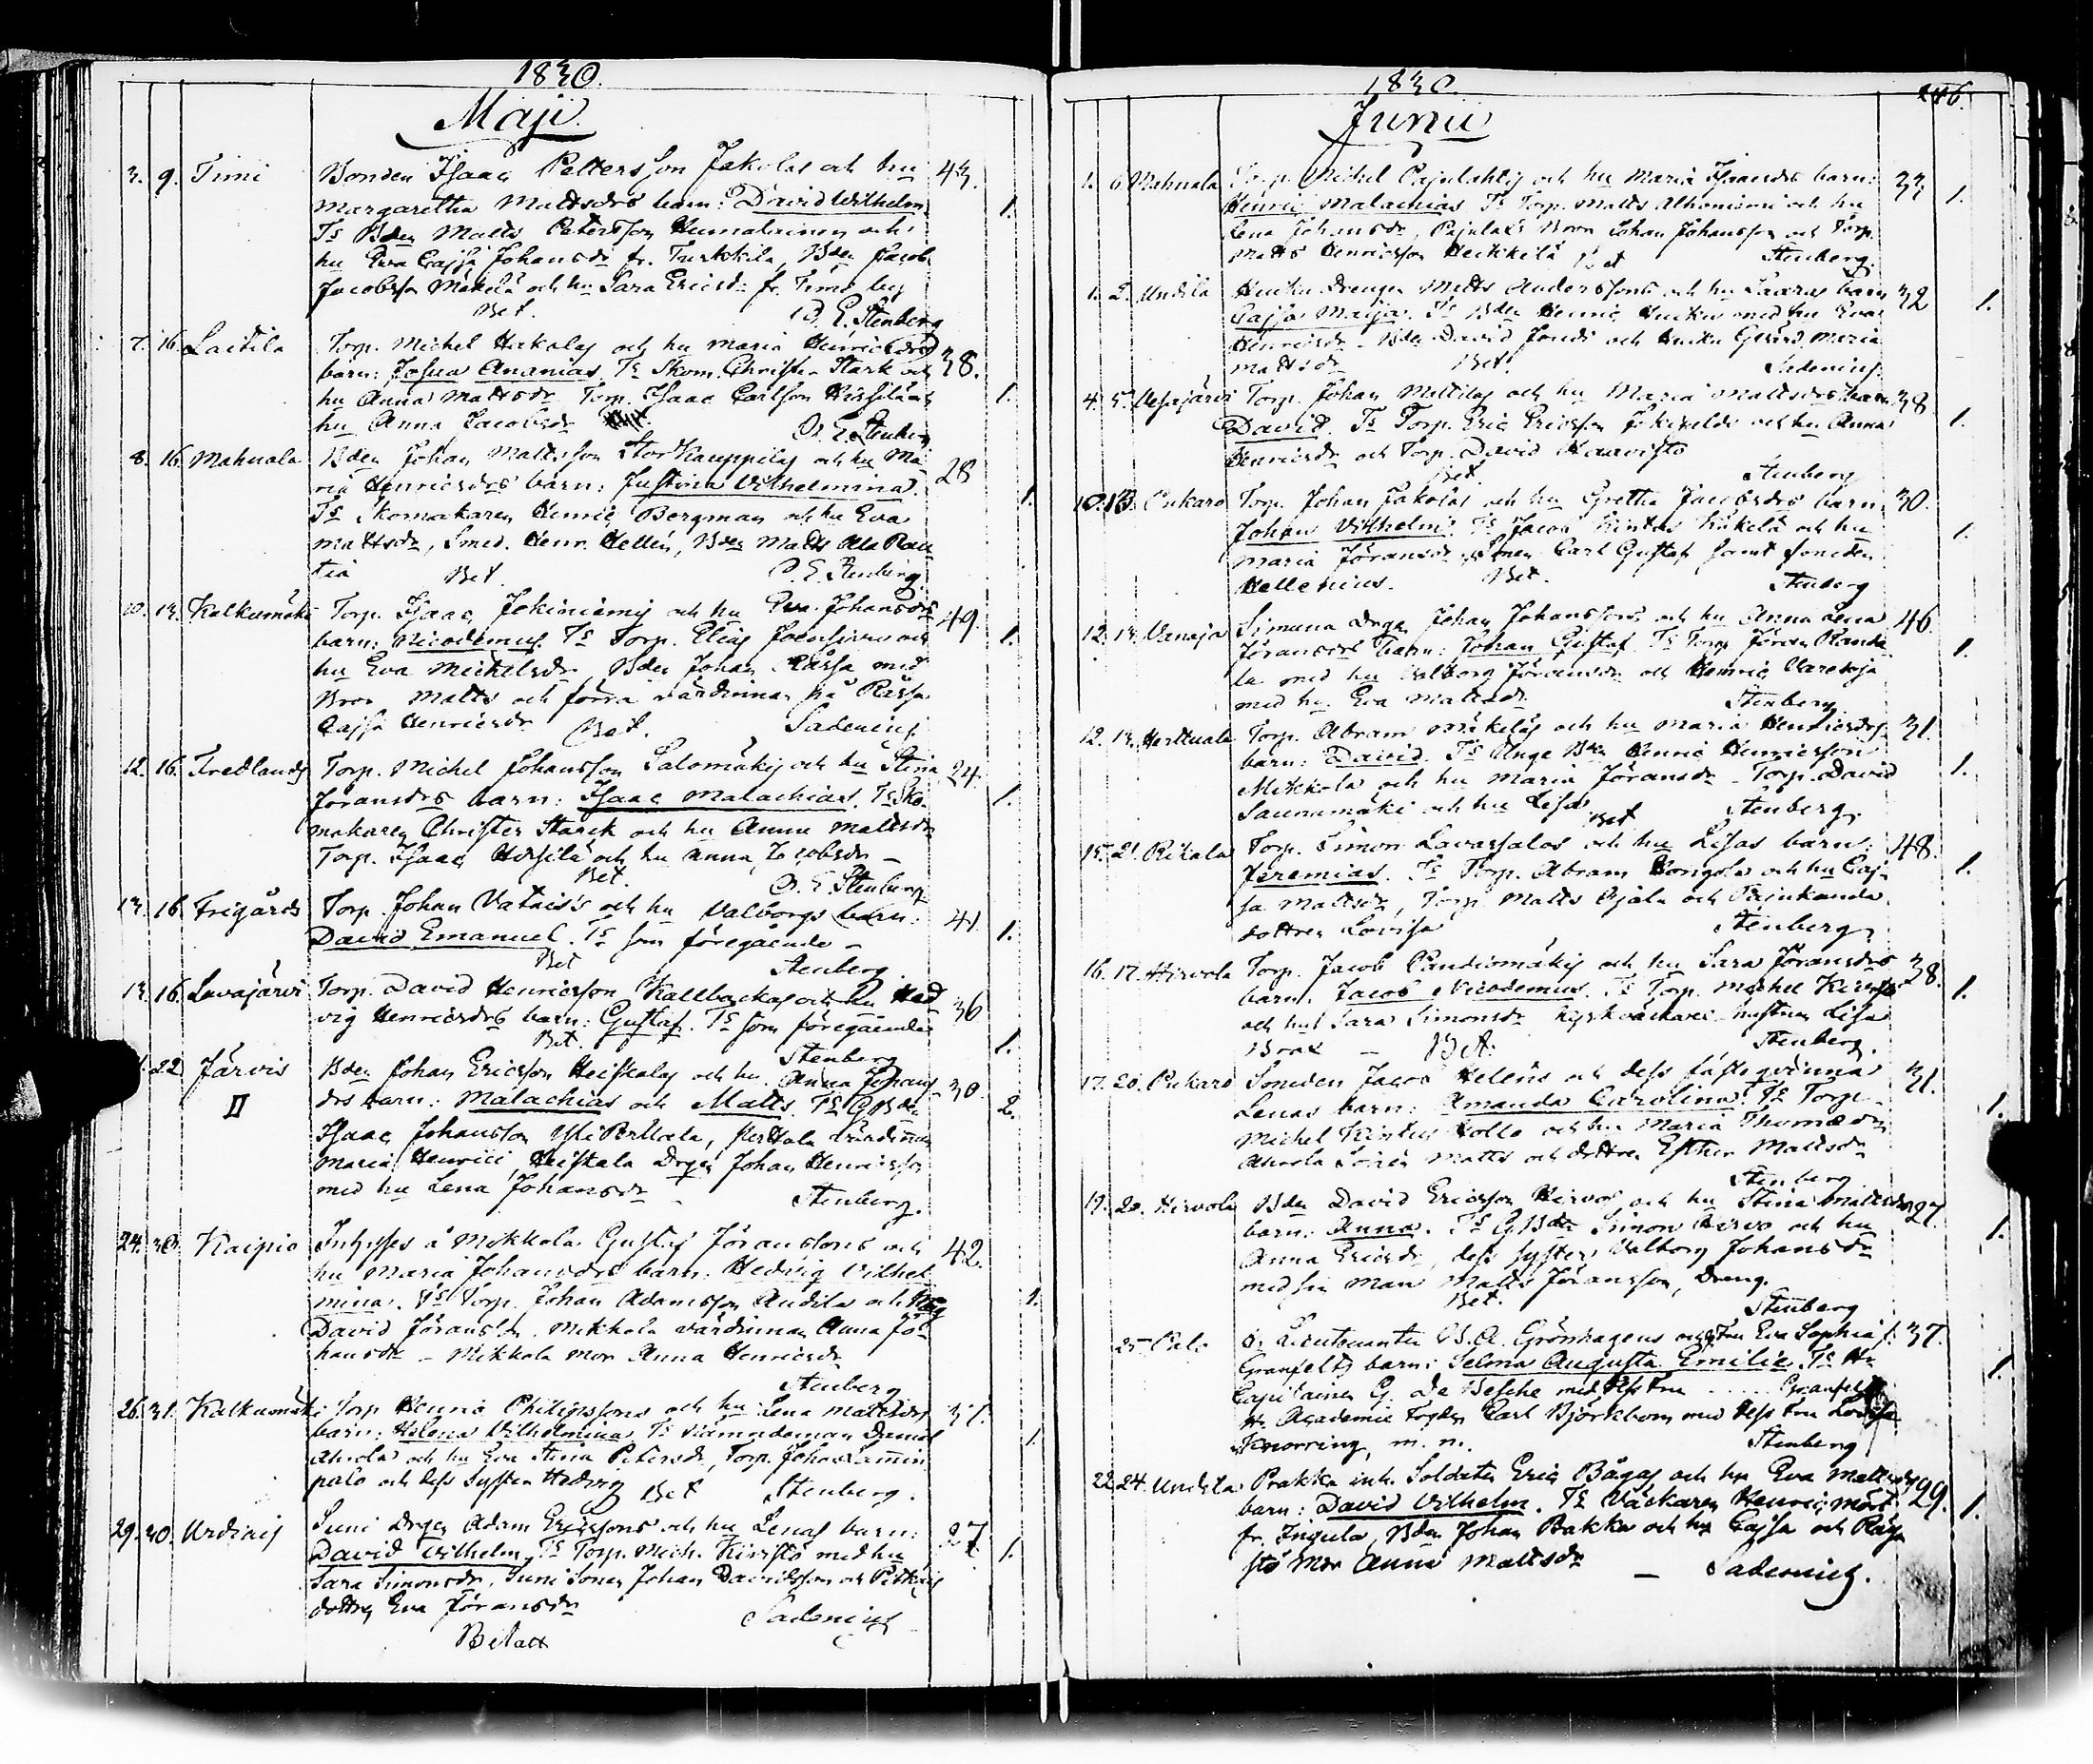 1830.
Maji
3. 9. Timi Bonden Isaac Petterson Jakolas och hu 43.
Margaretha Mattsdrs barn: David Wilhelm. 1.
Ts Bden Matts Petersson Humaloinen och
hu Eva Cajsa Johansdr fr. Turkkila, Bden Jacob
Jacobsson Mäkelä och hu Sara Ericsdr fr. Timi by
Bet. E. Stenberg
7. 16. Laitila Torp. Michel Hakolas och hu Maria Henricsdrs 38.
barn: Josua Ananias. Ts Skom. Christer Stark och
hu Anna Mattsdr Torp. Isaac Carlson Hirsilä och 1.
hu Anna Jacobsdr E. Stenberg
8. 16. Mahnala Bden Johan Mattsson StorKauppilas och hu Ma 28
ria Henricsdrs barn: Justina Vilhelmina. 1.
Ts Skomakaren Henric Bergman och hu Eva
Mattsdr, Smed. Henr. Hellén, Bden Matts Ala Rau
tia Bet. E. Stenberg.
10. 13. Kalkumäki Torp. Isaac Jokiniemis och hu Eva Johansdrs 49.
barn: Nicodemus. Ts Torp. Elias och 1.
hu Eva Michelsdr, Bden Johan Rässa med
Bror Matts och förra värdinnan på Rässa
Cajsa Henricsdr Bet. Sadenius.
12. 16. Tredlands Torp. Michel Johansson Salomäkis och hu Stina 24.
Jöransdrs barn: Isaac Malachias. Ts Sko- 1.
makaren Christer Starck och hu Anna Mattsdr
Torp. Isaac Hirsilä och hu Anna Jacobsdr –
Bet. E. Stenberg
13. 16. Frigårds Torp. Johan Vatais's och hu Valborgs barn: 41.
David Emanuel. Ts som föregående – 1.
Bet Stenberg.
13. 16. Lavajärvi Torp. David Henricsson Kallbackas och hu Hed 36
vig Henricsdrs barn: Gustaf. Ts som föregående
Bet. Stenberg 1.
22. Järvis Bden Johan Ericsson Heiskalas och hu Anna Johans 30.
II drs barn: Malachias och Matts. Ts GBden 2.
Isaac Johansson Yli Perttala, Perttala värdinnan
Maria Henrici, Heiskala Drgen Johan Henricsson
med hu Lena Johansdr – Stenberg.
24. 30. Kaipio Inhyses å Mikkola Gustaf Jöranssons och 42.
hu Maria Johansdrs barn: Hedvig Vilhel
mina. Ts Torp. Johan Adamsson Andila och Måg 1.
David Jöransson. Mikkola värdinnan Anna Jo
hansdr – Mikkola Mor Anna Henricsdr
Stenberg
26. 31. Kalkumäki Torp Henric Philipssons och hu Lena Mattsdrs 37.
barn: Helena Vilhelmina. Ts Nämndeman Daniel 1.
Ahola och hu Eva Stina Petersdr, Torp. Johan Lamin
palo och dess Syster Hedvig Bet Stenberg.
29. 30. Urdiais Suni Drgen Adam Ericssons och hu Lenas barn: 27
David Vilhelm. Ts Torp. Mich. Kivistö med hu 1.
Sara Simonsdr, Suni Sonen Johan Davidsson och Pitkäis
dottren Eva Jöransdr Sadenius
Betalt
1830.
Junii
1. 6. Mahnala Torp. Michel Pajulahtis och hu Maria Isaacsdrs barn: 33
Henric Malachias Ts Torp. Matts Alhoniemi och hu 1.
Lena Johansdr, Bror Johan Johansson och Torp.
Matts Henricsson Heikkilä Bet Stenberg.
1. 2. Undila Huiku Drengen Matts Anderssons och hu Saaras barn 32
Cajsa Maija. Ts Bden Henric Huiku med hu Eva 1.
Henricsdr – Bden David Jondi och Huiku Maria
Mattsdr Bet. Sadenius.
4. 5. Vesajärvi Torp. Johan Mattilas och hu Maria Mattsdrs barn 38
David. Ts Torp. Eric Ericsson och hu Anna 1.
Henricsdr och Torp. David Haavisto
Bet. Stenberg
10. 13. Pukaro Torp. Johan Jakolas och hu Gretha Jacobsdrs barn: 30.
Johan Vilhelm. Ts Jacob Kintus Häkelä och hu 1.
Maria Jöransdr, Sonen Carl Gustaf samt Smeden
Hellenius. Bet. Stenberg
12. 13. Vanaja Simuna Drgen Johan Johanssons och hu Anna Lena 46.
Jöransdrs barn: Johan Gustaf Ts Torp Jöran Randa 1.
la med hu Valborg Jöransdr och Henric
med hu Eva Mattsdr Stenberg
12. 13. Herttuala Torp. Abram Mäkeläs och hu Maria Henricsdrs 31.
barn: David. Ts Unge Bden Henric Henricsson
Mikkola och hu Maria Jöransdr – Torp. David 1.
Saunamäki och hu Lisa Bet Stenberg.
15. 21. Rikala Torp. Simon Lavassalos och hu Lisas barn: 48.
Jeremias. Ts Torp. Abram Kongola och hu Caj- 1.
sa Mattsdr, Torp. Matts Ojala och
dottren Lovisa Stenberg
16. 17. Hirvola Torp. Jacob Pandiomäkis och hu Sara Jöransdrs 38.
barn: Jacob Nicodemus. Ts Torp. Michel Kivistö 1.
och hu Sara Simonsdr Kyrkväktare hustrun Lisa
Brax – Bet. Stenberg.
17. 20. Pukaro Smeden Jacob Heléns och dess fästeqvinna 31.
Lenas barn: Amanda Carolina. Ts Torp. 1.
Michel Kintus Hollo och hu Maria Thomædr
Ahola Sonen Matts och dottren Esther Mattsdr
Stenberg
19. 20. Hirvola Bden David Ericsson Hirvos och hu Stina Mattsdrs 27.
barn: Anna. Ts GBden Simon Hirvo och hu 1.
Anna Ericsdr, dess syster Valborg Johansdr
med sin Man Matts Jöransson, Dreng.
Bet. Stenberg
25 Palo Hr Lieutnanten Grönhagens och Fru Eva Sophia f. 37.
Granfelts barn: Selma Augusta Emilie. Ts Hr
Capitainen G. De Besche med dess Fru ..... Granfelt 1.
Hr Academie Fogden Carl Björkbom med dess Fru Lovisa
Knorring, m. m. Stenberg
22. 24. Undila Prakka inh. Soldaten Eric Bågas och hu Eva Mattsdrs 29.
barn: David Vilhelm. Ts Väckaren Henric Mört 1.
fr. Ingula, Bden Johan Bakka och hu Cajsa och Räy
stö Mor Anna Mattsdr – Sadenius.